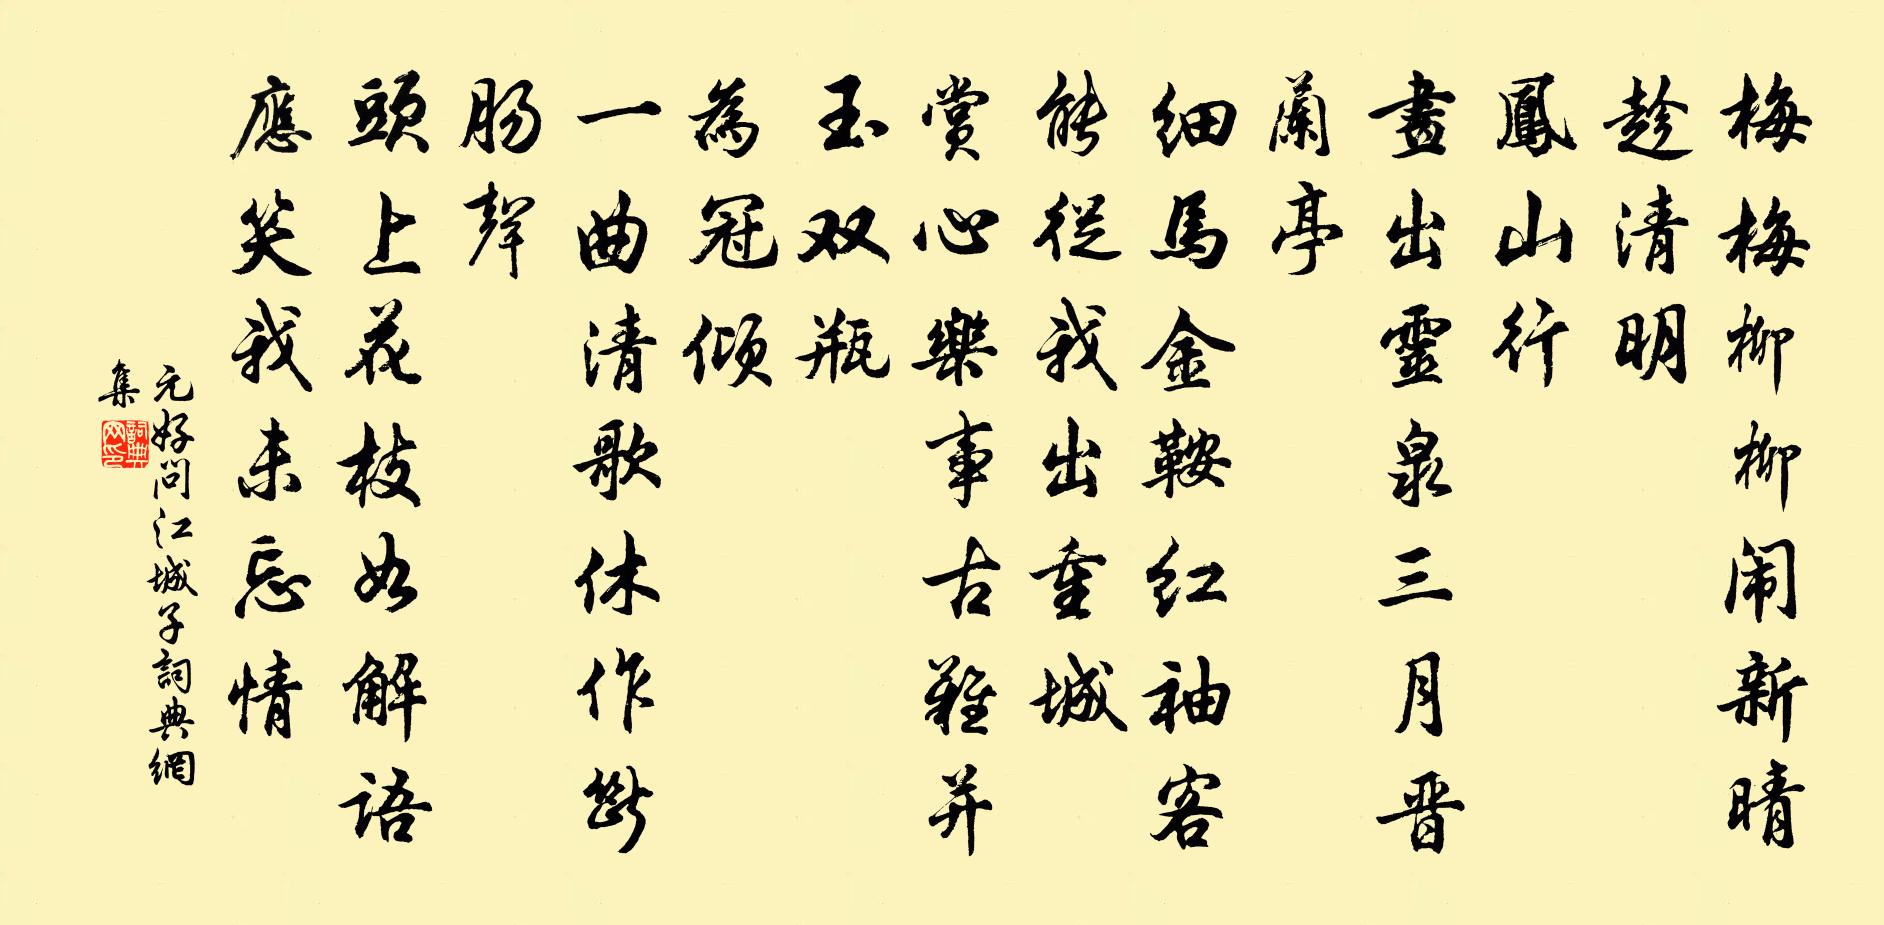 梅梅柳柳闹新晴
趁清明
鳳山行
畫出靈泉三月晋
蘭亭
细馬金鞍红袖客
能從我出重城
賞心樂事古難并
玉双瓶
為冠倾
一曲清歌休作斷
肠聲
頭上花枝如解語
應笑我未忘情
元好問江城子詞典網
集
詞典
网印